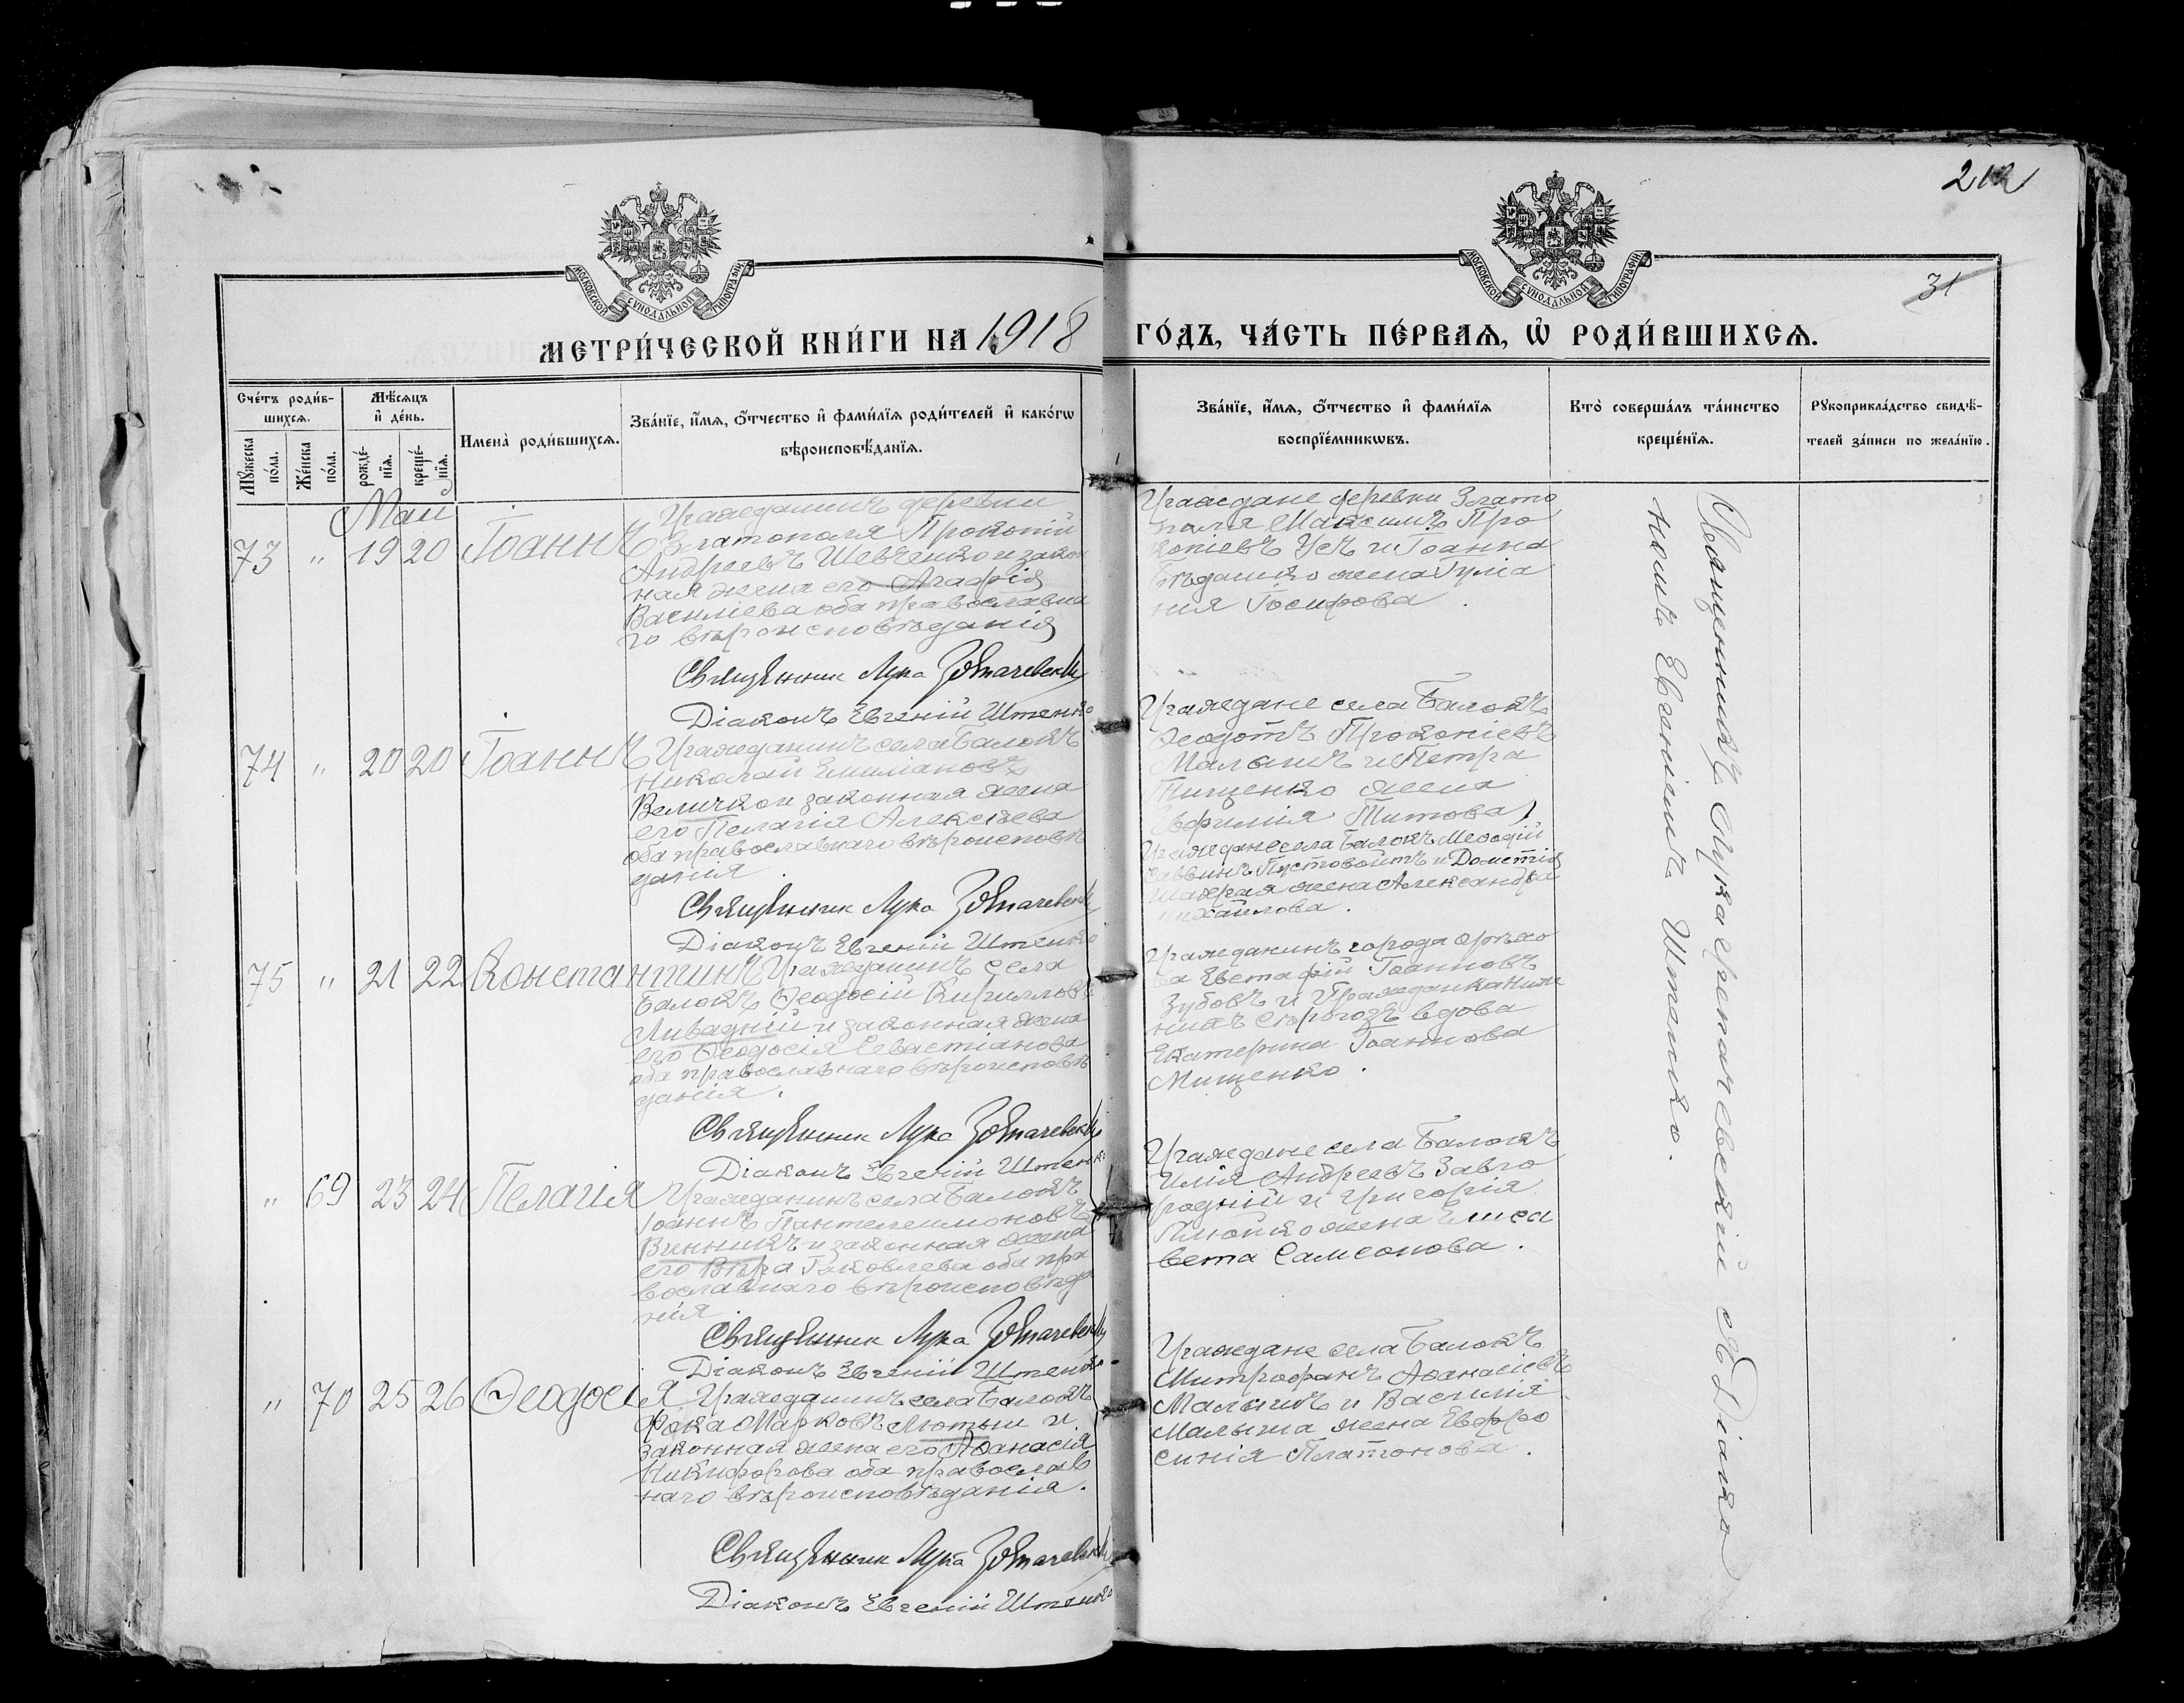 212
31
МОСКОВСКОЙ СѴНОДАЛЬНОЙ ТИПОГРАФІИ.
МОСКОВСКОЙ СѴНОДАЛЬНОЙ ТИПОГРАФІИ.
МЕТРИ́ЧЕСКОЙ КНИ́ГИ НА 1918 ГО́ДЪ, ЧА́СТЬ ПЕ́РВАѦ, Ѡ҆ РОДИ́ВШИХСѦ.
Сче́тъ роди́в-
шихсѧ.
Мꙋ́жеска по́ла.
Же́нска по́ла.
Мѣ́сѧцъ
и҆ де́нь.
рожде́-
нїѧ.
креще́-
нїѧ.
Имена̀ роди́вшихсѧ.
Зва́нїе, и҆́мѧ, ѻ҆́тчество и҆ фами́лїѧ роди́телей и҆ како́гѡ
вѣроисповѣ́данїѧ.
Зва́нїе, и҆́мѧ, ѻ҆́тчество и҆ фами́лїѧ
воспрїе́мникѡвъ.
Кто̀ соверша́лъ та́инство
креще́нїѧ.
Рꙋкоприкла́дство свидѣ́-
телей за́писи по жела́нїю.
Май
73 " 19 20 Іоаннъ
Гражданинъ деревни
Златополя Прокопій
Андреевъ Шевченко и закон
ная жена его Агафія
Василіева оба православна
го вѣроисповѣданія
Священник Лука
Діаконъ Евгеній Штенко
Граждане деревни Злато
поля Максимъ Про
копіевъ Усъ и Іоанна
жена Іуліа
ния Іосифова
74 " 20 20 Іоаннъ
Гражданинъ села Балокъ
Николай Емиліановъ
Величко и законная жена
его Пелагія Алексѣева
оба православнаго вѣроисповѣ
данія
Священник Лука
Діаконъ Евгеній Штенко
Граждане села Балокъ
Ѳеодотъ Прокопіевъ
Малышъ и Петра
Тищенко жена
Евфимія Титова
Граждане села Балокъ Меѳодій
Саввинъ Пустовойтъ и Дометія
жена Александра
Михайлова.
75 " 21 22 Константинъ
Гражданинъ села
Балокъ Ѳеодосій Кирилловъ
Ливадній и законная жена
его Ѳеодосія Севастіанова
оба православнаго вѣроисповѣ
данія.
Священник Лука
Діаконъ Евгеній Штенко
Гражданинъ города Орѣхо
ва Евстафій Іоанновъ
Зубовъ и Гражданка Ниж
нихъ Сѣрогозъ вдова
Екатерина Іоаннова
Мищенко.
" 69 23 24 Пелагія
Гражданинъ села Балокъ
Іоаннъ Пантелеимоновъ
Винникъ и законная жена
его Вѣра Яковлева оба пра
вославнаго вѣроисповѣда
нія
Священник Лука
Діаконъ Евгеній Штенко
Граждане села Балокъ
Илія Андреевъ Завго
родній и Григорія
жена Елиса
вета Самсонова.
" 70 25 26 Ѳеодосія
Гражданинъ села Балокъ
Фока Марковъ Лютый и
законная жена его Аѳанасія
Никифорова оба православ
наго вѣроисповѣданія.
Священник Лука
Діаконъ Евгеній Штенко
Граждане села Балокъ
Митрофанъ Аѳанасіевъ
Малышъ и Василія
Малыша жена Евфро
синія Платонова.
Священникъ Лука с Діако
номъ Евгеніемъ Штенко.